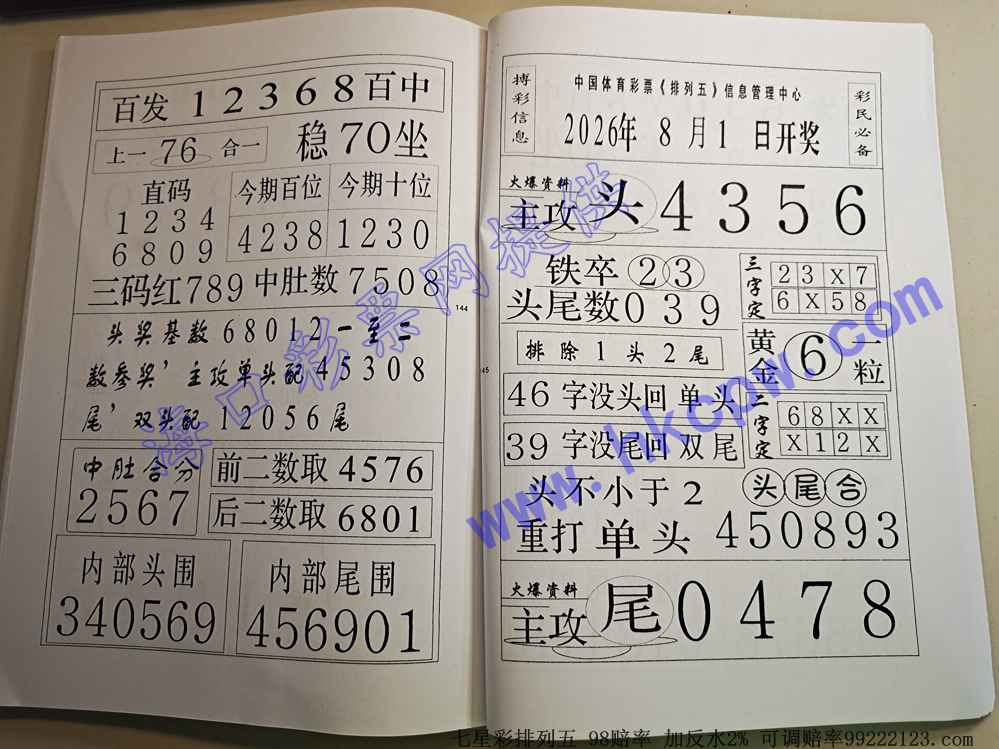 百发 12368 百中
上一 76 合一
稳 70 坐
直码
1234
6809
今期百位 今期十位
4238 1230
三码红 789 中肚数 7508
头奖基数 68012 一至二
数参奖’主攻单头配 45308
尾’双头配 12056 尾
中肚合分
2567
前二数取 4576
后二数取 6801
内部头围
340569
内部尾围
456901
144
145
搏彩信息
中国体育彩票《排列五》信息管理中心
2026年 8 月 1 日开奖
彩民必备
火爆资料
主攻 头 4356
铁卒 23
头尾数 039
排除 1 头 2 尾
三字定
2 3 X 7
6 X 5 8
黄金 6 一粒
46 字没头回 单 头
39 字没尾回 双 尾
二字定
6 8 X X
X 1 2 X
头 不 小 于 2
头尾合
重打 单 头 450893
火爆资料
主攻 尾 0478
海口彩票网提供
www.hkcpw.com
七星彩排列五 98赔率 加反水2% 可调赔率99222123.com